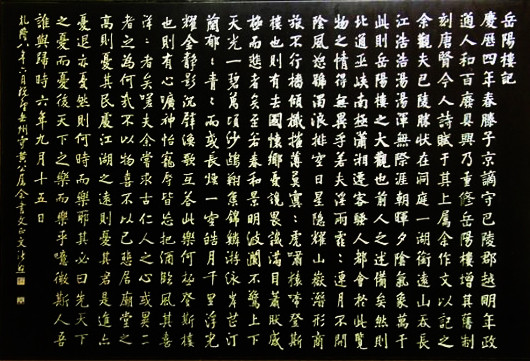 岳陽樓記
慶曆四年春滕子京謫守巴陵郡越明年政
通人和百廢具興乃重修岳陽樓增其舊制
刻唐賢今人詩賦于其上屬余作文以記之
余觀夫巴陵勝狀在洞庭一湖銜遠山吞長
江浩浩湯湯渾無際涯朝暉夕陰氣象萬千
此則岳陽樓之大觀也前人之述備矣然則
北通巫峽南極瀟湘遷客騷人都會於此覽
物之情得無異乎若夫淫雨霏:連月不開
陰風怒號濁浪排空日星隱耀山嶽潛形商
旅不行檣傾楫摧薄暮冥:虎嘯猿啼登斯
樓也則有去國懷鄉憂讒畏譏滿目蕭然感
極而悲者矣至若春和景明波瀾不驚上下
天光一碧萬頃沙鷗翔集錦鱗游泳岸芷汀
蘭郁:青:而或長煙一空皓月千里浮光
耀金靜影沉璧漁歌互答此樂何極登斯樓
也則有心曠神怡寵辱皆忘把酒臨風其喜
洋:者矣嗟夫余嘗求古仁人之心或異二
者之為何哉不以物喜不以己悲居廟堂之
高則憂其民處江湖之遠則憂其君是進亦
憂退亦憂然則何時而樂耶其必曰先天下
之憂而憂後天下之樂而樂乎噫微斯人吾
誰與歸時六年九月十五日